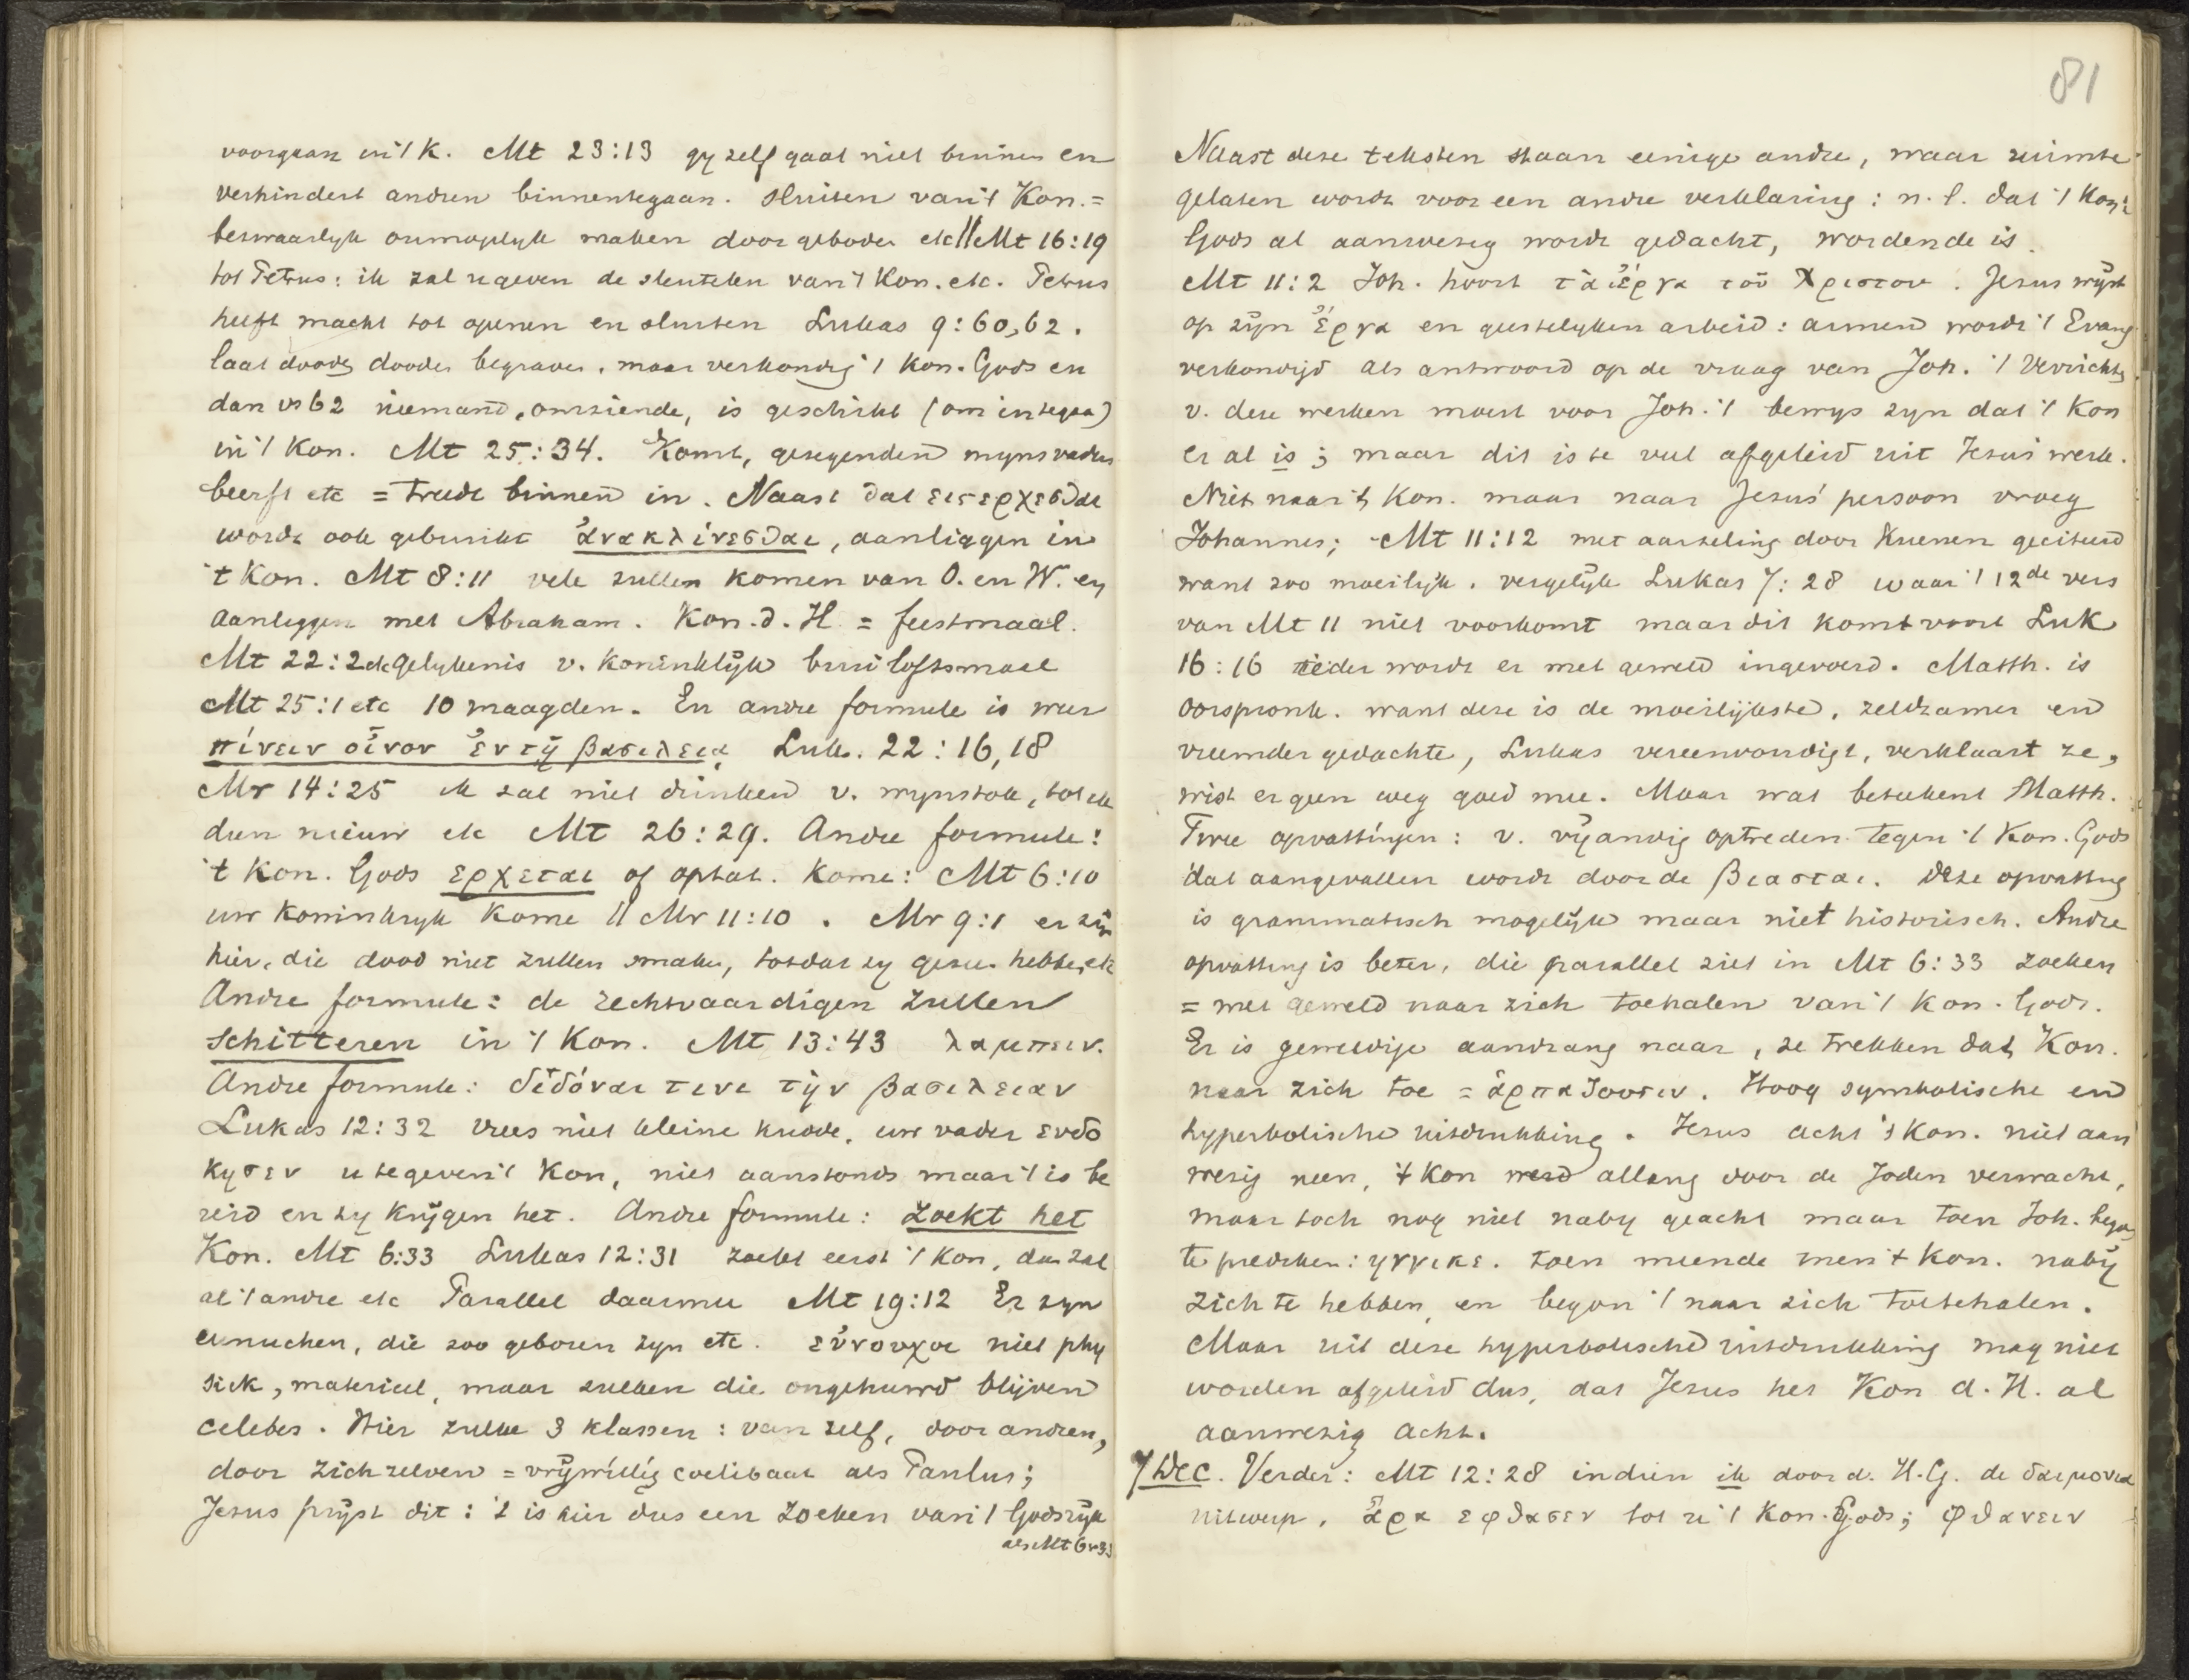 voorgaan in 't K. Mt 23:13 gy zelf gaat niet binnen en
verhindert andren binnentegaan. Sluiten van 't Kon. =
bezwaarlyk onmogelyk maken door geboden etc || Mt 16:19
tot Petrus: ik zal u geven de sleutelen van 't Kon. etc. Petrus
heeft macht tot openen en sluiten Lukas 9:60,62.
laat dooden dooden begraven, maar verkondig 't Kon. Gods en
dan vs 62 niemand, omziende, is geschikt (om integaan)
in 't Kon. Mt 25:34. Komt, gezegenden myns vaders
beerft etc = treedt binnen in. Naast dat εισερχεσθαι
wordt ook gebruikt ἀνακλίνεσθαι, aanliggen in
't Kon. Mt 8:11 vele zullen komen van O. en W. en
aanliggen met Abraham. Kon. d. H = feestmaal.
Mt 22:2 etc gelykenis v. koninklijk bruiloftsmael
Mt 25:1 etc 10 maagden. En andre formule is weer
πίνειν οἶνον ἐν τῇ βασιλεια Luk. 22:16,18
Mr 14:25 ik zal niet drinken v. wynstok, tot ik
dien nieuw etc Mt 26:29. Andre formule:
't Kon. Gods ερχεται of optat. kome: Mt 6:10
uw koninkryk kome || Mr 11:10. Mr 9:1 er zijn
hier, die dood niet zullen smaken, totdat zy gezien hebben etc
Andre formule: de rechtvaardigen zullen
schitteren in 't Kon. Mt 13:43 λαμπειν.
Andre formule: διδόναι τινι τὴν βασιλειαν
Lukas 12:32 vrees niet kleine kudde, uw vader ευδο
κησεν u te geven 't Kon, niet aanstonds maar 't is be
reid en zy krijgen het. Andre formule: zoekt het
Kon. Mt 6:33 Lukas 12:31 zoekt eerst 't Kon, dan zal
al 't andre etc Parallel daarmee Mt 19:12 Er zyn
eunuchen, die zoo geboren zyn etc. εὐνουχοι niet phy
siek, materieel, maar zulken die ongehuwd blijven
celebes. Hier zulke 3 klassen: van zelf, door andren,
door zichzelven = vrijwillig coelibaat als Paulus;
Jesus prijst dit: 't is hier dus een zoeken van 't Godsrijk
als Mt 6 v 33
81
Naast deze teksten staan eenige andre, waar ruimte
gelaten wordt voor een andre verklaring: n.l. dat 't Kon.
Gods al aanwezig wordt gedacht, wordende is.
Mt 11:2 Joh. hoort τὰ ἔργα τοῦ Χριστου. Jesus wijst
op zijn ἔργα en geestelyken arbeid: armen wordt 't Evang
verkondigd als antwoord op de vraag van Joh. 't Verrichten
v. deze werken moest voor Joh. 't bewys zyn dat 't Kon
er al is; maar dit is te veel afgeleid uit Jesus' werk.
Niet naar 't Kon. maar naar Jesus' persoon vroeg
Johannes; Mt 11:12 met aarzeling door Kuenen geciteerd
want zoo moeilijk. vergelijk Lukas 7:28 waar 't 12de vers
van Mt 11 niet voorkomt maar dit komt voor Luk
16:16 ieder wordt er met geweld ingevoerd. Matth. is
oorspronk. want deze is de moeilijkste, zeldzamer en
vreemder gedachte, Lukas vereenvoudigt, verklaart ze,
wist er geen weg goed mee. Maar wat beteekent Matth.
Twee opvattingen: v. vijandig optreden tegen 't Kon. Gods
dat aangevallen wordt door de βιασται. Deze opvatting
is grammatisch mogelijk maar niet historisch. Andre
opvatting is beter, die parallel ziet in Mt 6:33 zoeken
= met geweld naar zich toehalen van 't Kon. Gods.
Er is geweldige aandrang naar, ze trekken dat Kon.
naar zich toe = ἁρπαζουσιν. Hoog symbolische en
hyperbolische uitdrukking. Jesus acht 't Kon. niet aan
wezig neen, 't Kon werd allang door de Joden verwacht,
maar toch nog niet naby geacht maar toen Joh. begon
te prediken: ηγγικε. toen meende men 't Kon. naby
zich te hebben, en begon 't naar zich toetehalen.
Maar uit deze hyperbolische uitdrukking mag niet
worden afgeleid dus, dat Jesus het Kon d. H. al
aanwezig acht.
7 Dec. Verder: Mt 12:28 indien ik door d. H.G. de δαιμονια
uitwerp, ἄρα εφθασεν tot u 't Kon. Gods; φθανειν